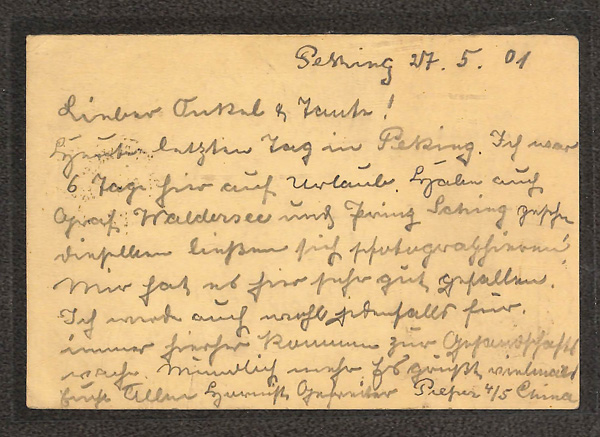 Peking 27. 5. 01
Lieber Onkel & Tante!
Heute letzten Tag in Peking. Ich war
6 Tage hier auf Urlaub. Habe auch
Graf Waldersee und Prinz Tsching gesehn
dieselben ließen sich photographieren!
Mir hat es hier sehr gut gefallen.
Ich werde auch wohl jedenfalls für
immer hierher kommen zur Gesandschafts
wache. Mündlich mehr Es grüßt vielmals
Euch Allen Gefreiter 4/5 China